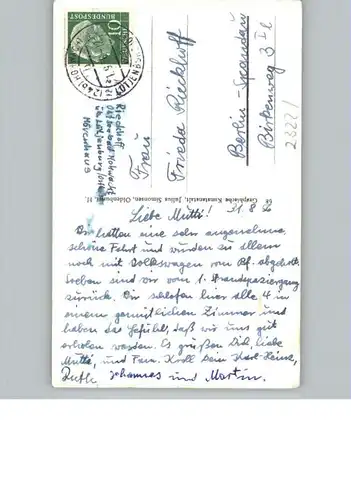 10
DEUTSCHE
BUNDESPOST
Rieckhoff
Ostseebad Hohwacht
üb. Lütjenburg/Ostholst.
Möwenhaus
Frau
Frieda Rieckhoff
Berlin-Spandau
Birkenweg 3 II
Graphische Kunstanstalt, Julius Simonsen, Oldenburg i. H.
Liebe Mutti! 31.8.56
Wir hatten eine sehr angenehme,
schöne Fahrt und wurden zu allem
noch mit Volkswagen vom Bf. abgeholt.
Soeben sind wir vom 1. Strandspaziergang
zurück. Wir schlafen hier alle 4 in
einem gemütlichen Zimmer und
haben das Gefühl, daß wir uns gut
erholen werden. Es grüßen Dich, liebe
Mutti, und Fam. Kroll Dein Karl-Heinz,
Ruth, Johannes und Martin.